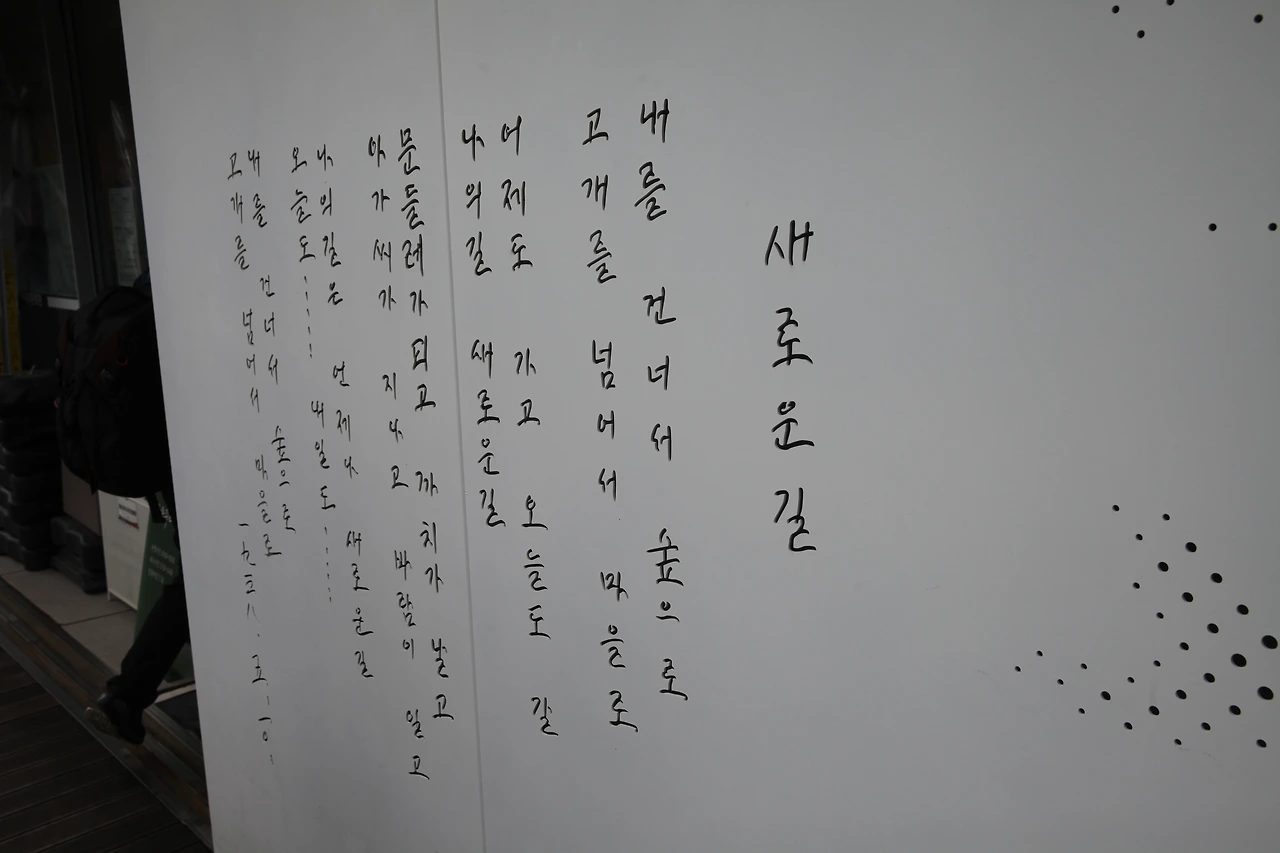 새로운 길
내를 건너서 숲으로
고개를 넘어서 마을로
어제도 가고 오늘도 갈
나의길 새로운길
문들레가 피고 까치가 날고
아가씨가 지나고 바람이 일고
나의길은 언제나 새로운길
오늘도..... 내일도.....
내를 건너서 숲으로
고개를 넘어서 마을로
一九三八.五.一〇.